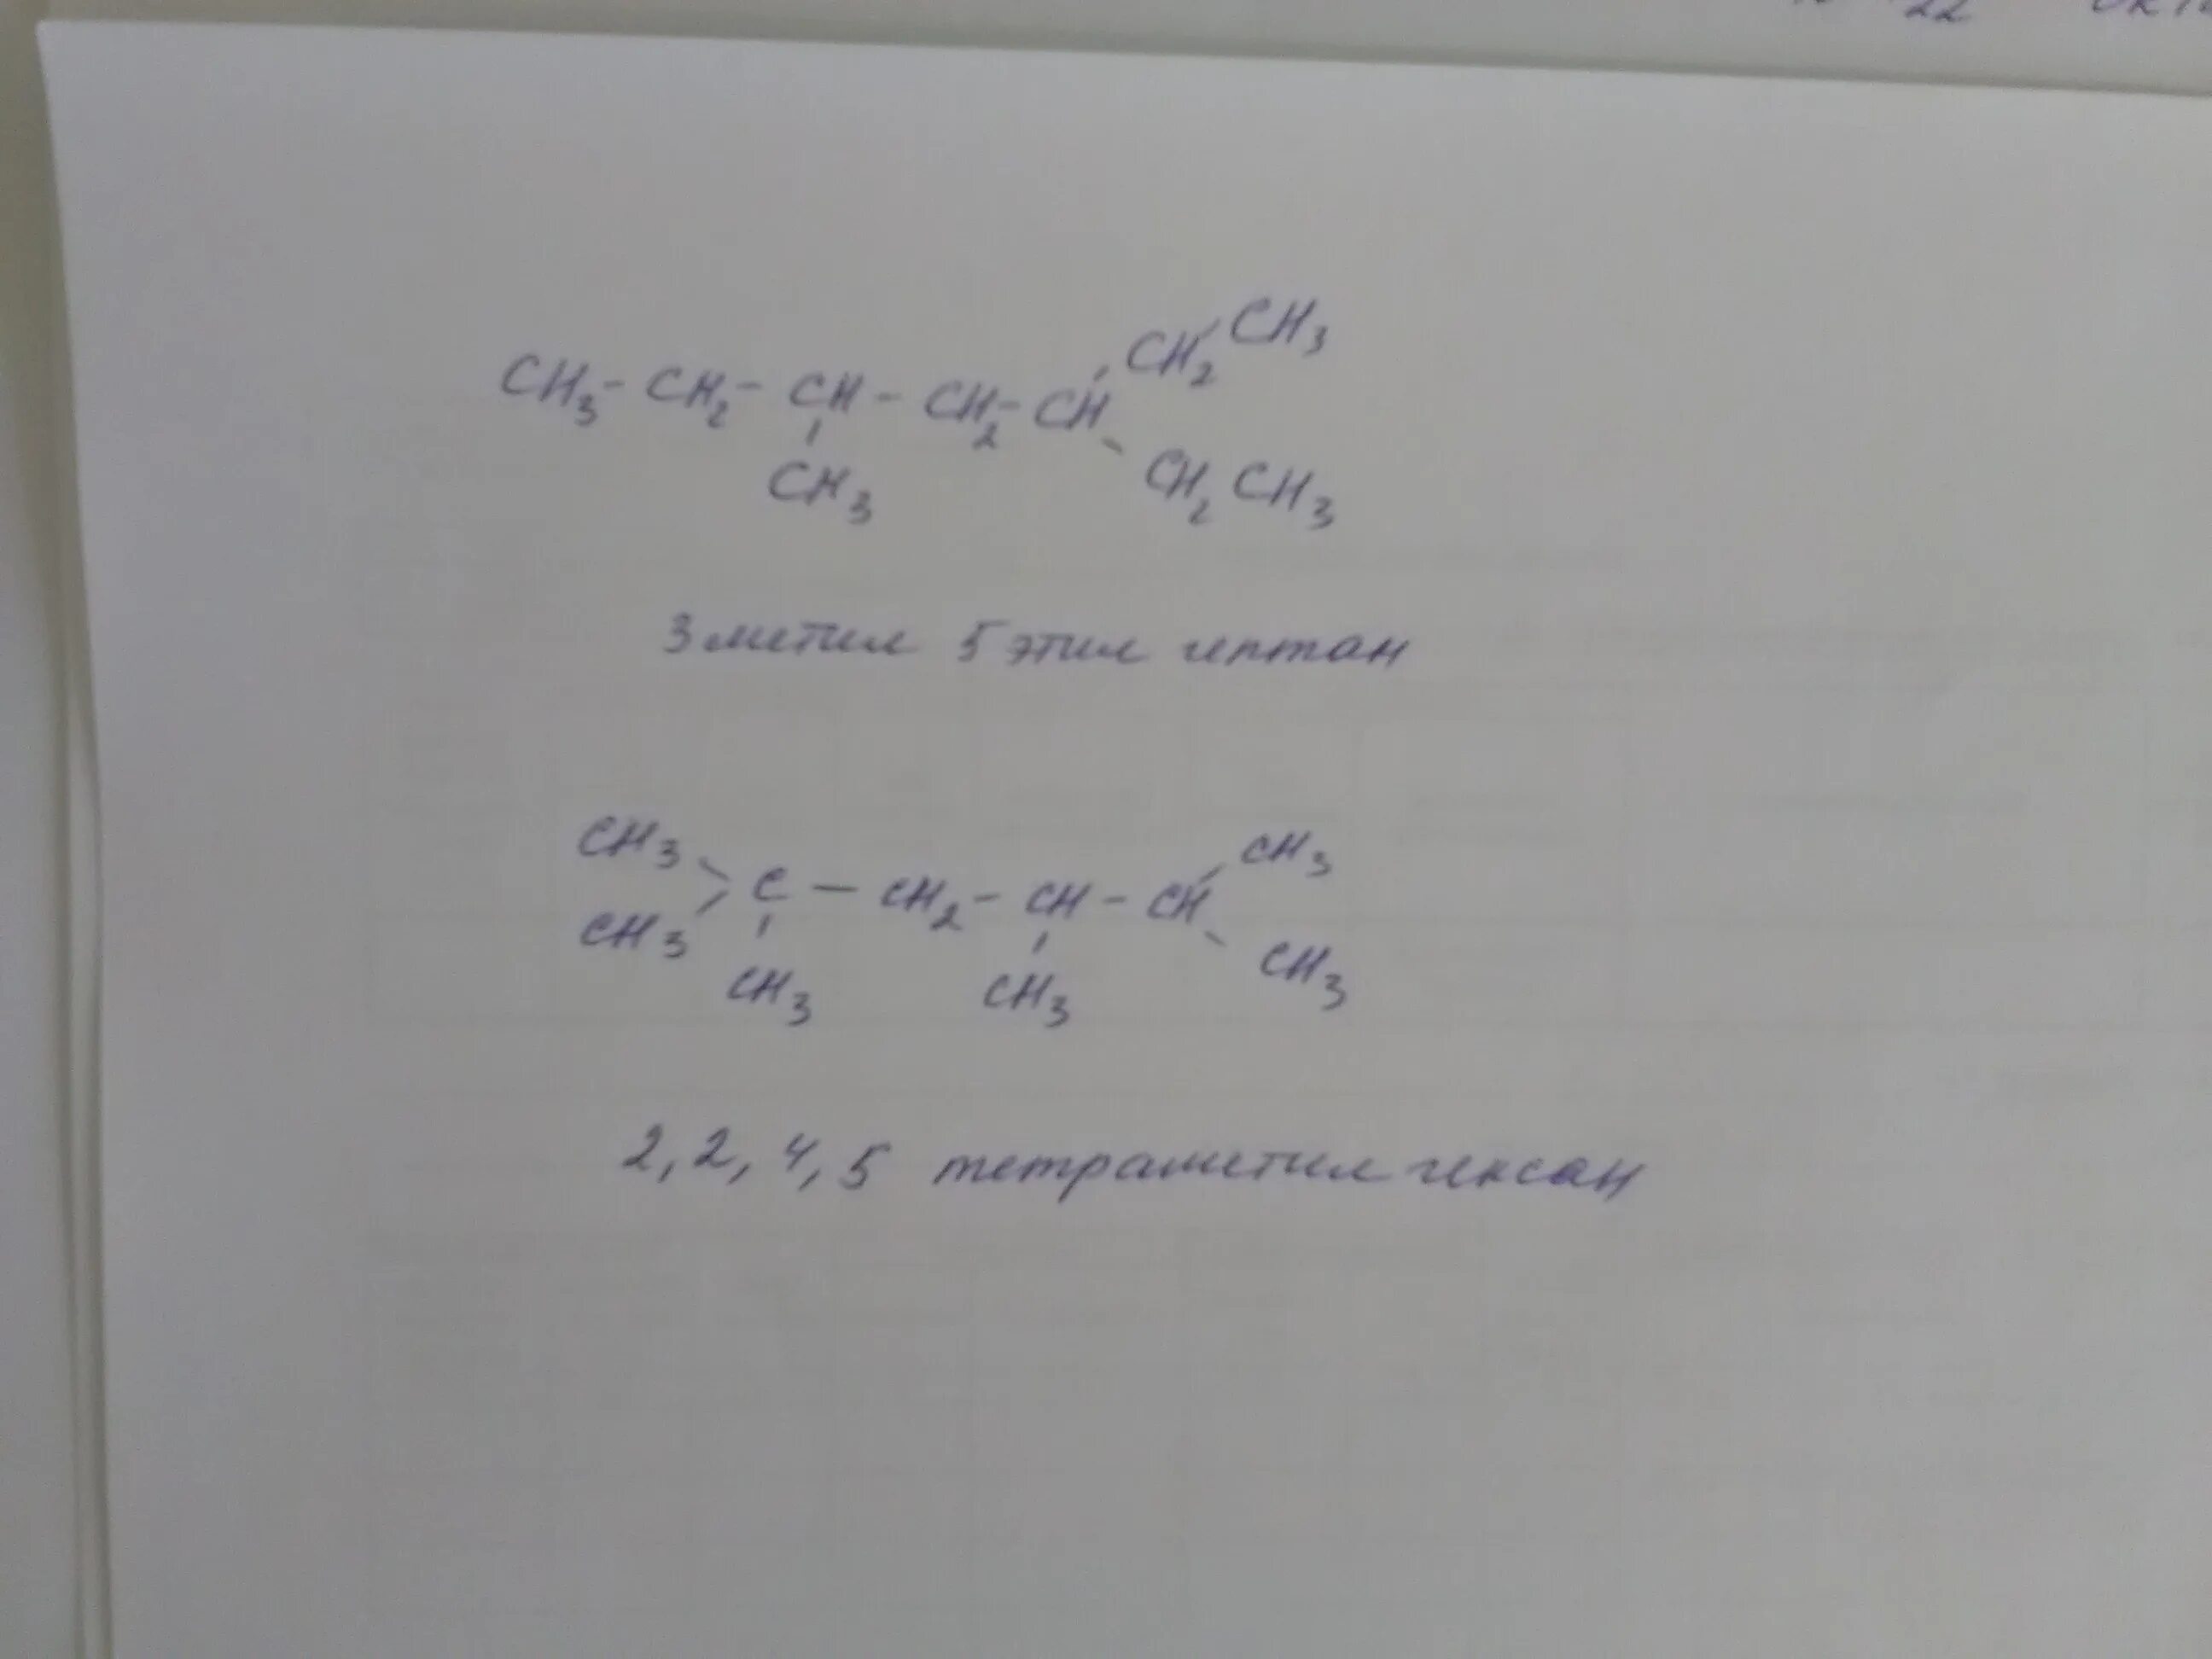 22
CH3
CH3 - CH2 - CH - CH2 - CH CH2
CH3 CH2 CH3
3 метил 5 этил гептан
CH3 CH3
C — CH2 - CH - CH
CH3 CH3 CH3 CH3
2, 2, 4, 5 тетраметил гексан